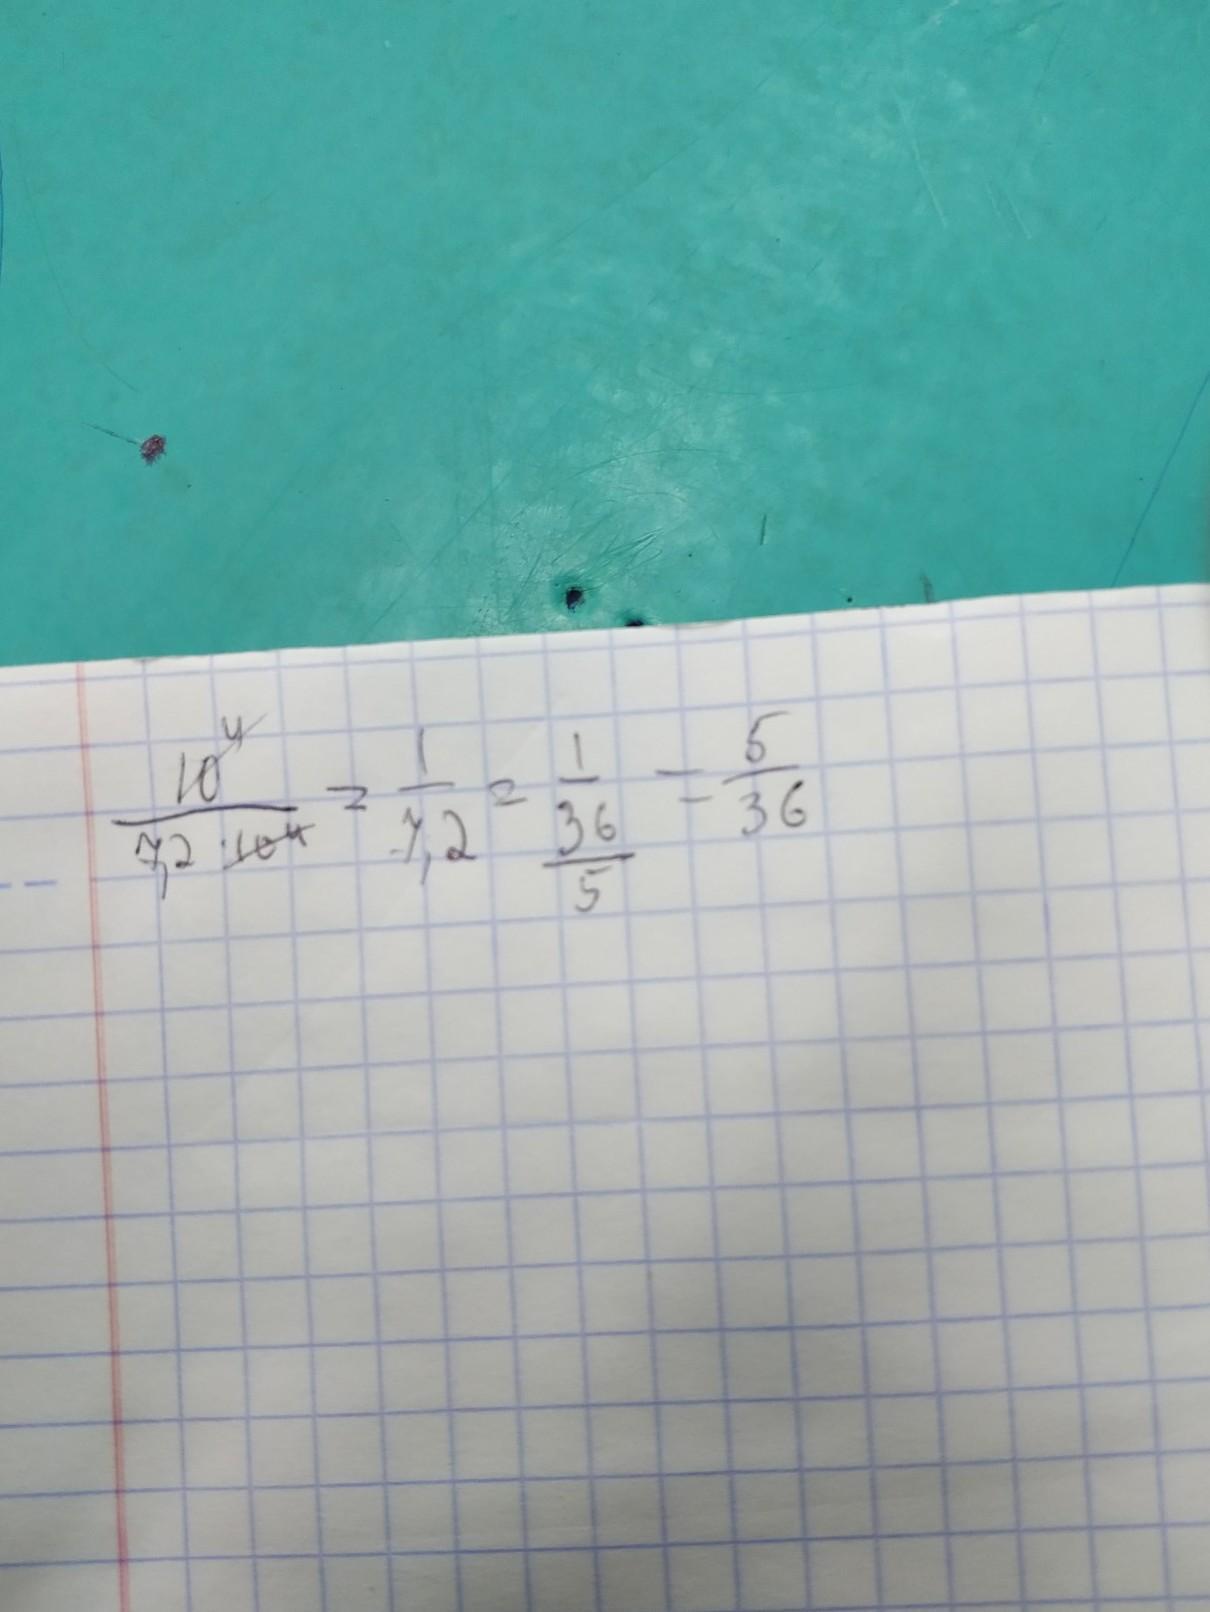 10⁴/(7,2 · 10⁴) = 1/7,2 = 1/(36/5) = 5/36